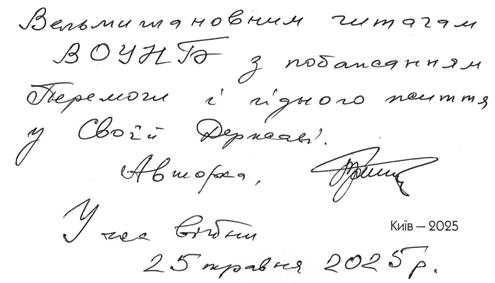 Вельмишановним читачам
ВОУНБ з побажанням
Перемоги і гідного життя
у Своїй Державі.
Авторка,
У час війни
Київ — 2025
25 травня 2025 р.